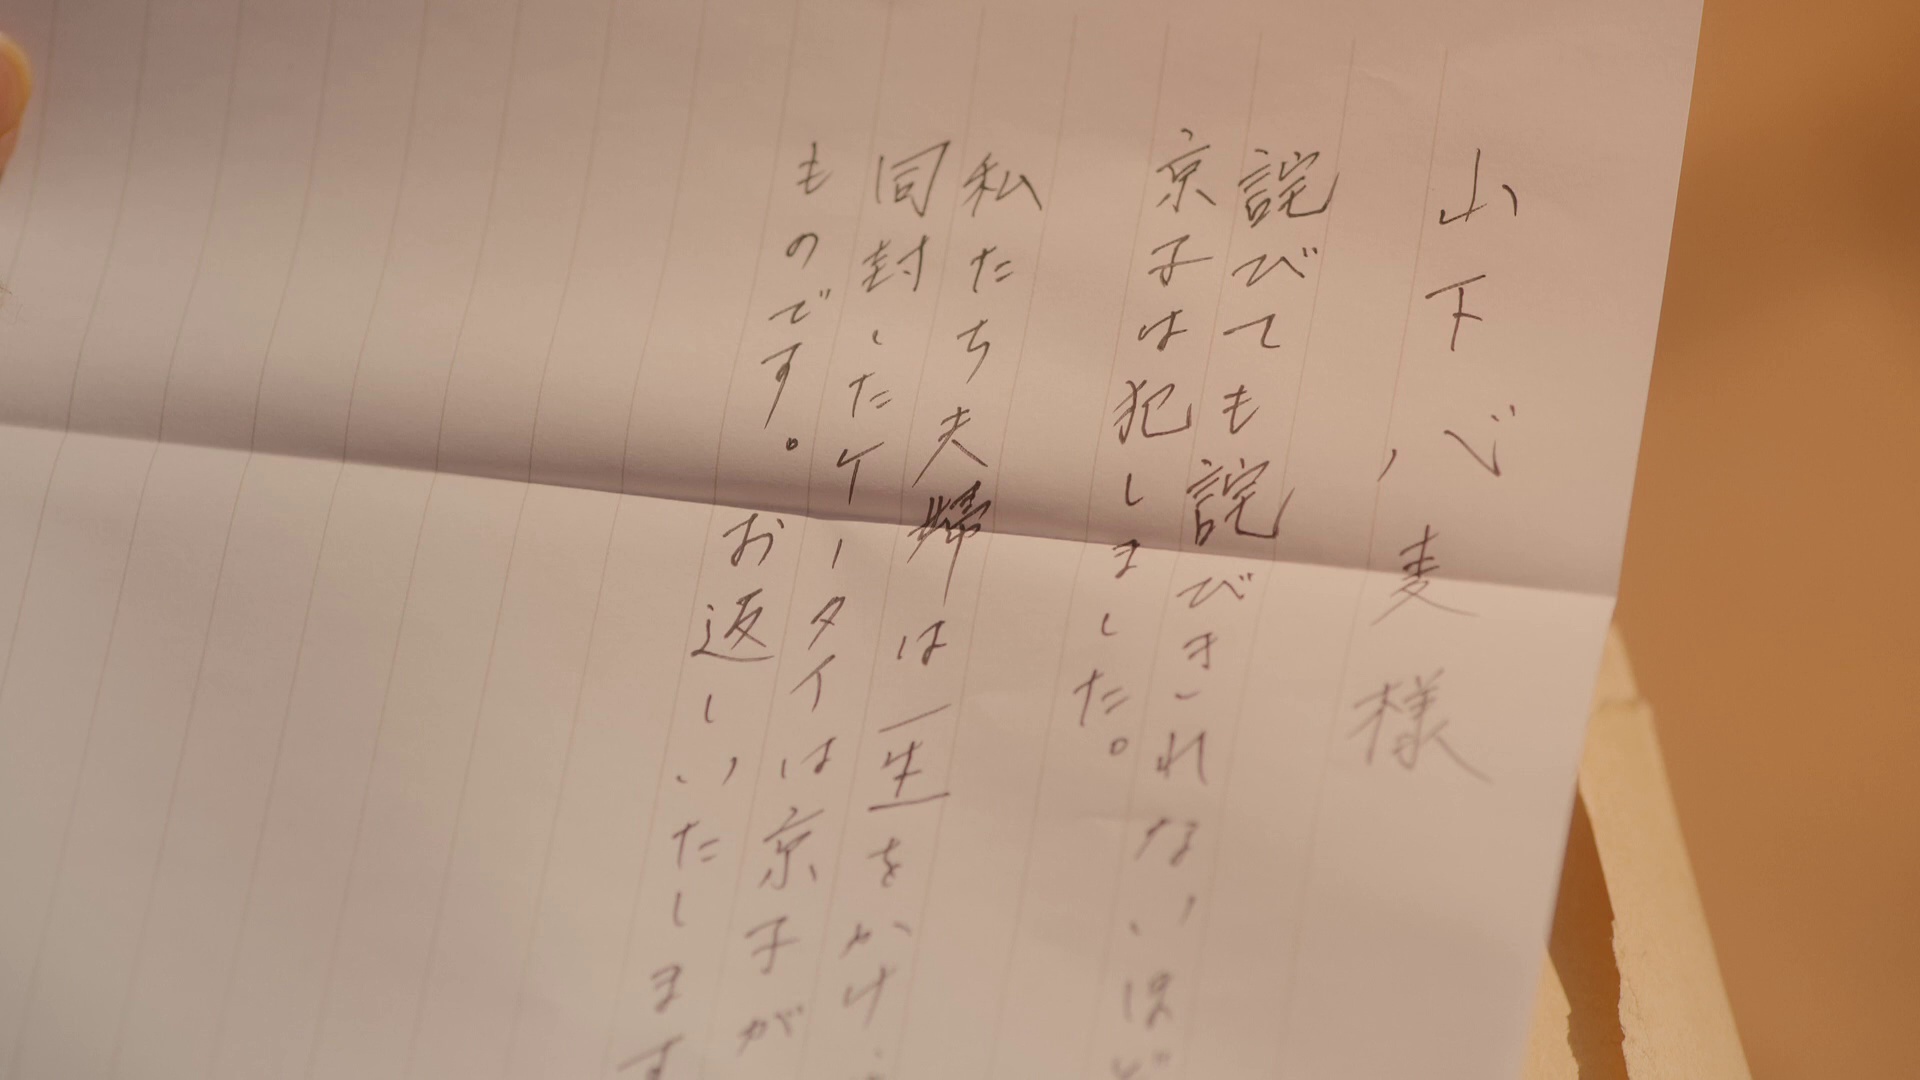 山下心麦様
詫びても詫びきれないほど
京子は犯しました。
私たち夫婦は一生をかけ
同封したケータイは京子が
ものです。お返しいたします